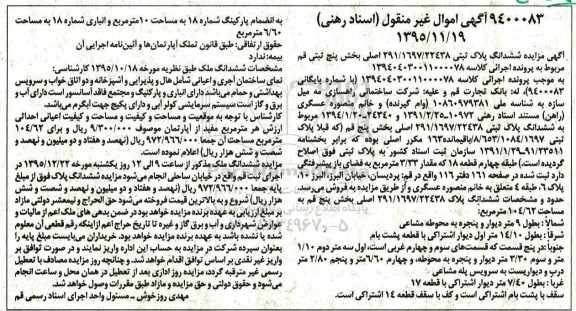 ۹۴۰۰۰۸۳ آگهی اموال غیر منقول (اسناد رهنی)
۱۳۹۵/۱۱/۱۹
آگهی مزایده ششدانگ پلاک ثبتی ۲۹۱/۱۶۹۷/۲۲۴۳۸ اصلی بخش پنج ثبتی قم
مربوط به پرونده اجرائی کلاسه ۱۳۹۴۰۴۰۳۰۰۱۱۰۰۰۰۷۸
به موجب پرونده اجرائی کلاسه ۱۳۹۴۰۴۰۳۰۰۱۱۰۰۰۰۷۸ (با شماره بایگانی
۹۴۰۰۰۸۳)، له: بانک تجارت قم و علیه: شرکت ساختمانی راهسازی مه میل
سازه به شناسه ملی ۱۰۸۶۰۹۷۹۳۸۱ (وام گیرنده) و خانم منصوره عسگری
(راهن) مستند اسناد رهنی
به ششدانگ پلاک ثبتی ۲۹۱/۱۶۹۷/۲۲۴۳۸ اصلی بخش پنج قم (که قبلا پلاک
ثبتی قم
سازمان ثبت اسناد کشور به پلاک ثبتی فوق اصلاح
گردیده است)، طبقه چهارم قطعه ۱۸ که مقدار ۲/۳۳ مترمربع به فضای باز پیشرفتگی
دارد ثبت شده در صفحه ۱۶۱ دفتر ۱۱۶ واقع در قم: پردیسان، خیابان البرز، البرز ۱۰
پلاک ۶، طبقه ۴ متعلق به خانم منصوره عسگری و از طریق مزایده به فروش می‌رسد.
حدود و مشخصات ششدانگ پلاک ۲۹۱/۱۶۹۷/۲۲۴۳۸ اصلی بخش پنج قم به
مساحت ۱۰۴/۶۲ مترمربع:
شمالا: بطول ۹ متر دیوار و پنجره به محوطه مشاعی
شرقا: بطول ۱۴/۱۰ متر اول دیوار اشتراکی با قطعه پشت بام
جنوبا: در پنج قسمت که قسمت‌های سوم و چهارم غربی است، اول سه متر دوم ۱/۱۰
متر و سوم ۳/۳۰ متر دیوار و پنجره به محوطه، و چهارم ۶/۶۰ متر و پنجم ۲/۸۰ متر
درب و دیواریست به سرویس پله مشاعی
غربا: بطول ۷/۴۰ متر دیوار اشتراکی با قطعه ۱۷
سقف با پشت بام اشتراکی است و کف با سقف قطعه ۱۴ اشتراکی است.
به انضمام پارکینگ شماره ۱۸ به مساحت ۱۰ مترمربع و انباری شماره ۱۸ به مساحت
۶/۶۰ مترمربع
حقوق ارتفاقی: طبق قانون تملک آپارتمان‌ها و آئین‌نامه اجرایی آن
بیمه: ندارد
مشخصات ششدانگ ملک طبق نظریه مورخه ۱۳۹۵/۱۰/۱۸ کارشناسی:
نمای ساختمان آجری و اعیانی شامل هال و پذیرایی و آشپزخانه و دو اتاق خواب و سرویس
بهداشتی و حمام می‌باشد دارای انباری و پارکینگ و مجتمع فاقد آسانسور است دارای آب و
برق و گاز است سیستم سرمایشی کولر آبی و دارای پکیج جهت آبگرم می‌باشد.
کارشناس با توجه به موقعیت و مساحت و کیفیت و مساحت و کیفیت اعیانی احداثی
ارزش هر مترمربع مفید از آپارتمان موصوف ۹/۳۰۰/۰۰۰ ریال و برای ۱۰۴/۶۲
مترمربع مساحت آن جمعا ۹۷۲/۹۶۶/۰۰۰ ریال (نهصد و هفتاد و دو میلیون و نهصد و
شصت و شش هزار ریال) اعلام نموده است.
مزایده ششدانگ ملک مذکور از ساعت ۹ الی ۱۲ روز یکشنبه مورخه ۱۳۹۵/۱۲/۲۲ در
اجرای ثبت قم واقع در خیابان ساحلی انجام می‌شود مزایده ششدانگ پلاک فوق از مبلغ
پایه جمعا ۹۷۲/۹۶۶/۰۰۰ ریال (نهصد و هفتاد و دو میلیون و نهصد و شصت و شش
هزار ریال) شروع و به بالاترین قیمت فروخته می‌شود حق الحراج و نیمعشر دولتی مازاد
بر مبلغ ارزیابی به عهده برنده مزایده خواهد بود در ضمن بدهی های ملک اعم از مالیات و
عوارض شهرداری و آب و برق و گاز و غیره تا تاریخ حراج اعم از اینکه رقم قطعی آن معلوم
شده یا نشده باشد به عهده برنده مزایده خواهد بود. خریداران می‌بایست مبلغ پایه را
بعنوان سپرده شرکت در مزایده به حساب این اداره واریز نمایند و در صورت توافق بر
واریز غیر نقدی بر اساس توافق اقدام خواهد شد. و چنانچه روز مزایده مصادف با تعطیل
رسمی غیر مترقبه گردد، مزایده روز اداری بعد از تعطیل در همان محل و ساعت انجام
می‌شود و حقوق دولتی و حق مزایده و مازاد طبق مقررات وصول خواهد شد.
مهدی روزخوش ـ مسئول واحد اجرای اسناد رسمی قم